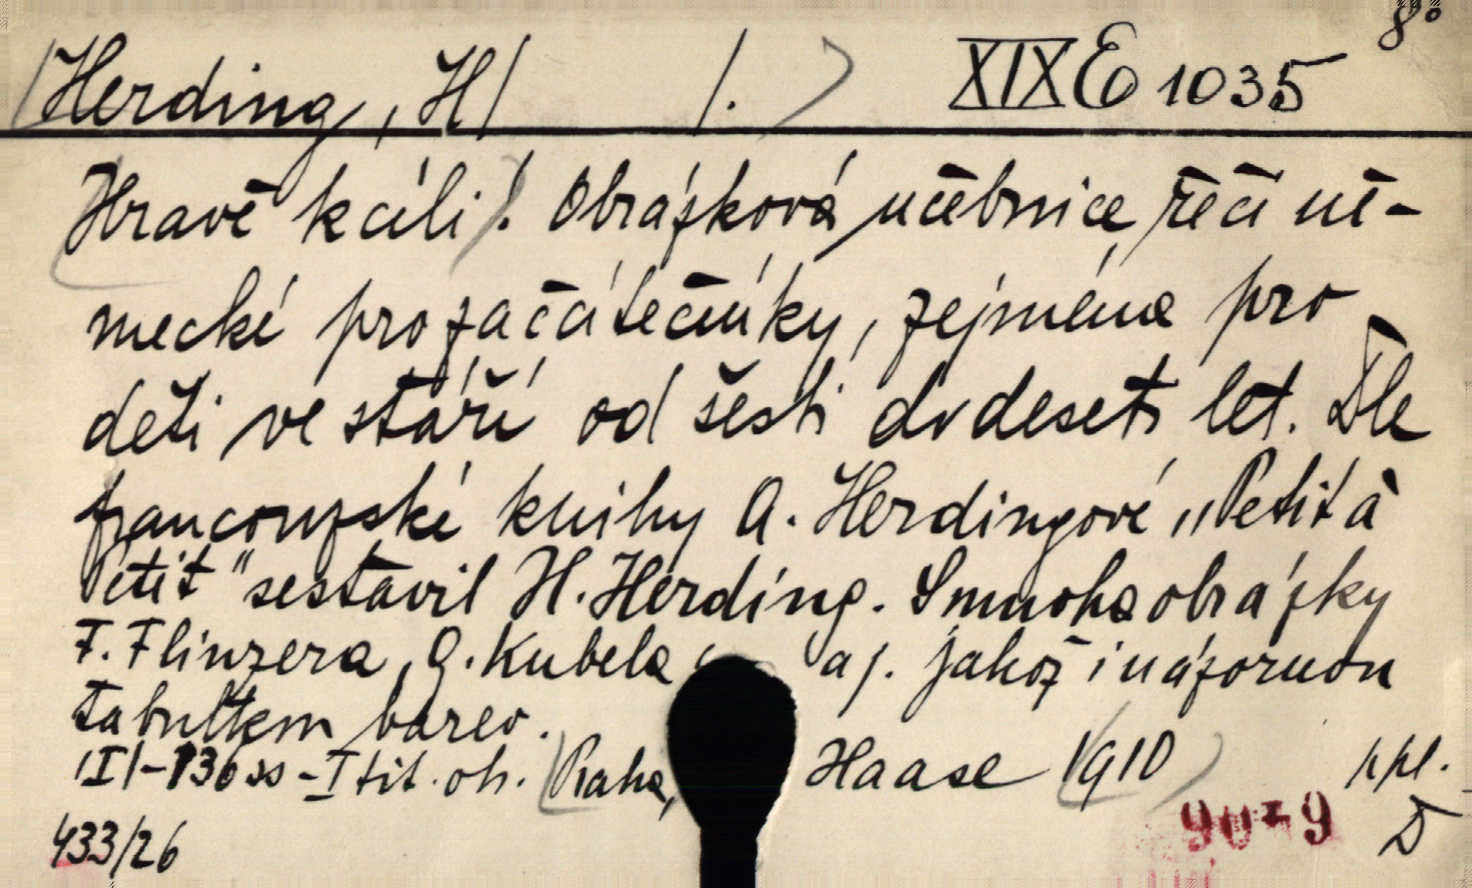 8°
/Herding, H/ /. XIX E 1035
Hravě k cíli! Obrázková učebnice řeči ně-
mecké pro začátečníky, zejména pro
děti ve stáří od šesti do deseti let. Dle
francouzské knihy A. Herdingové „Petit à
Petit" sestavil H. Herding. S mnoha obrázky
F. Flinzera, G. Kubela aj. jakož i názornou
tabulkou barev.
/I/-136 ss - I tit. ob. Praha, Haase 1910 ppl.
433/26 D